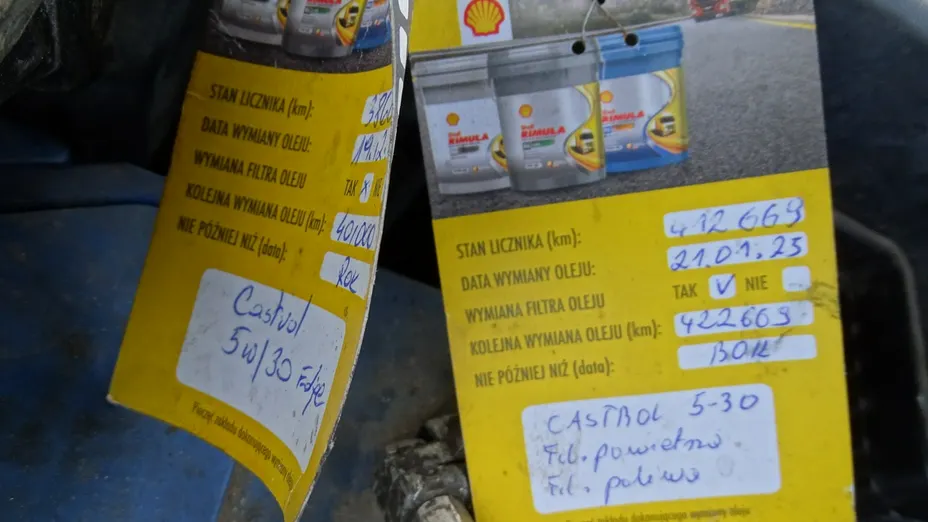 STAN LICZNIKA (km):
DATA WYMIANY OLEJU:
WYMIANA FILTRA OLEJU TAK x
KOLEJNA WYMIANA OLEJU (km):
NIE PÓŹNIEJ NIŻ (data): Rok
Castrol
5W/30 Edge
Pieczęć zakładu dokonującego wymiany
Shell
RIMULA
Shell
RIMULA
Shell
RIMULA
STAN LICZNIKA (km): 412 669
DATA WYMIANY OLEJU: 21.01.25
WYMIANA FILTRA OLEJU TAK V NIE
KOLEJNA WYMIANA OLEJU (km): 422669
NIE PÓŹNIEJ NIŻ (data):
CASTROL 5-30
Fil. powietrza
Fil. paliwa
Pieczęć zakładu dokonującego wymiany oleju